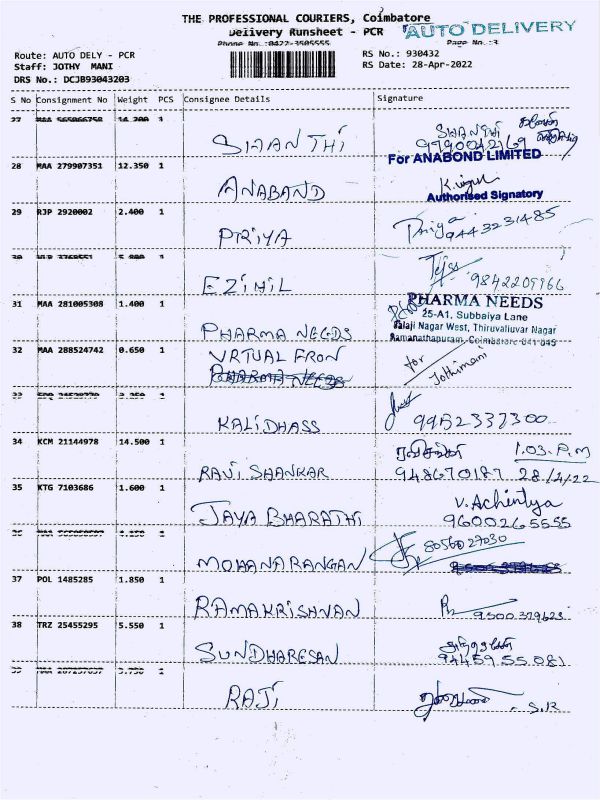 THE PROFESSIONAL COURIERS, Coimbatore
Delivery Runsheet - PCR
AUTO DELIVERY
Phone No.:0422-3505555
Page No.:3
Route: AUTO DELY - PCR
RS No.: 930432
Staff: JOTHY MANI
RS Date: 28-Apr-2022
DRS No.: DCJB93043203
S No Consignment No Weight PCS Consignee Details Signature
27 MAA 14.200 1
9790042169
28 MAA 279907351 12.350 1 ANABAND
For ANABOND LIMITED
Authorised Signatory
29 RJP 2920002 2.400 1 PRIYA
Priya 9443231485
30 1 EZIHIL
31 MAA 281005308 1.400 1 PHARMA NEEDS
PHARMA NEEDS
25-A1, Subbaiya Lane
Balaji Nagar West, Thiruvalluvar Nagar
Ramanathapuram, Coimbatore-641 045
32 MAA 288524742 0.650 1 VRTUAL FRON
for Jothimani
33 1 KALIDHASS
34 KCM 21144978 14.500 1 RAVI SHANKAR
1.03. P.M
948670187 28/4/22
35 KTG 7103686 1.600 1 JAYA BHARATHI
V. Achintya
9600265555
1 MOHANA RANGAN
8056027030
37 POL 1485285 1.850 1 RAMAKRISHNAN
9500379623
38 TRZ 25455295 5.550 1 SUNDHARESAN
94459 55 081
39 1 RAJI
S.R